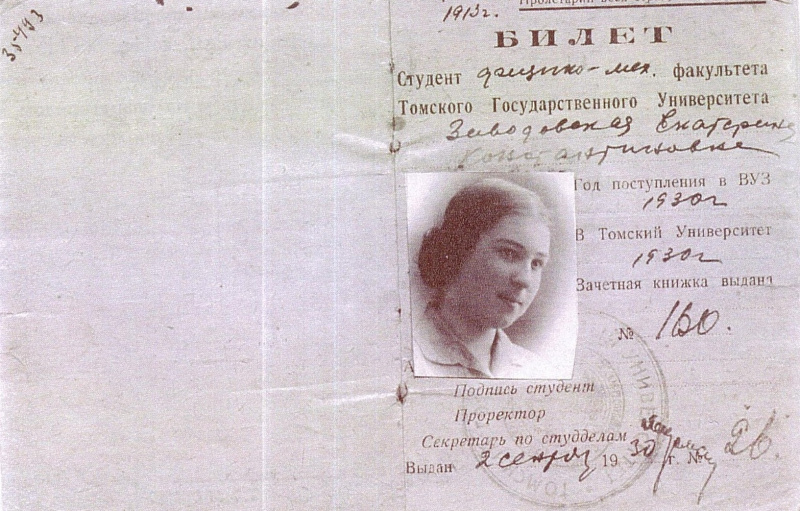 35493
1913г.
Пролетарии всех
БИЛЕТ
Студент физико-мех. факультета
Томского Государственного Университета
Заводовская Екатерина
Константиновна
Год поступления в ВУЗ
1930г
В Томский Университет
1930г
Зачетная книжка выдана
№ 160.
Подпись студент
Проректор
Секретарь по студделам
Выдан 2 сентяб 1930 г. №